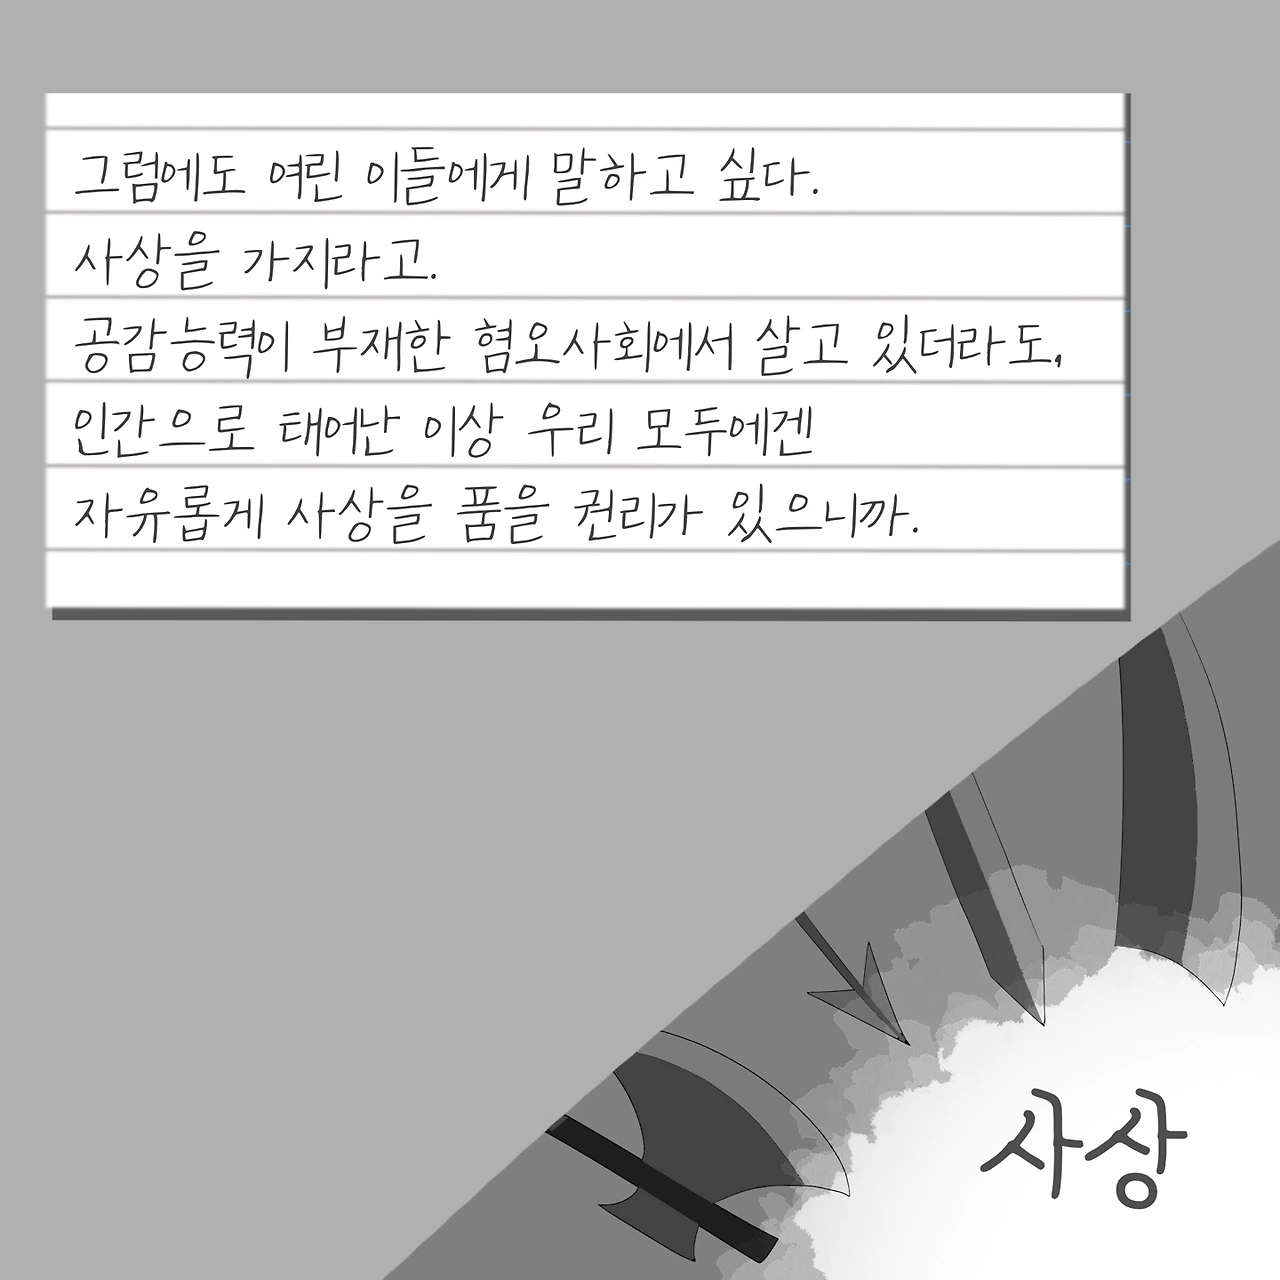 그럼에도 여린 이들에게 말하고 싶다.
사상을 가지라고.
공감능력이 부재한 혐오사회에서 살고 있더라도,
인간으로 태어난 이상 우리 모두에겐
자유롭게 사상을 품을 권리가 있으니까.
사상